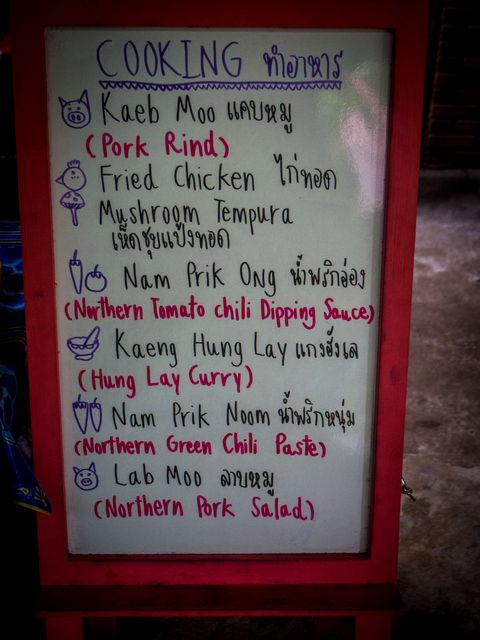 COOKING ทำอาหาร
Kaeb Moo แคบหมู
(Pork Rind)
Fried Chicken ไก่ทอด
Mushroom Tempura
เห็ดชุบแป้งทอด
Nam Prik Ong น้ำพริกอ่อง
(Northern Tomato chili Dipping Sauce)
Kaeng Hung Lay แกงฮังเล
(Hung Lay Curry)
Nam Prik Noom น้ำพริกหนุ่ม
(Northern Green Chili Paste)
Lab Moo ลาบหมู
(Northern Pork Salad)